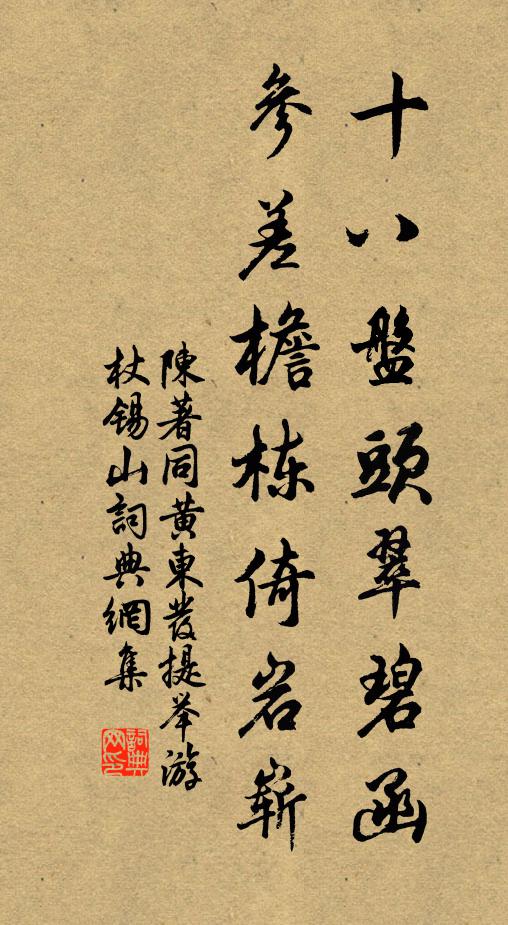 十八盤頭翠碧函
參差檐栋倚岩嶄
陳著同黃東發提举游
杖錫山詞典網集
詞典